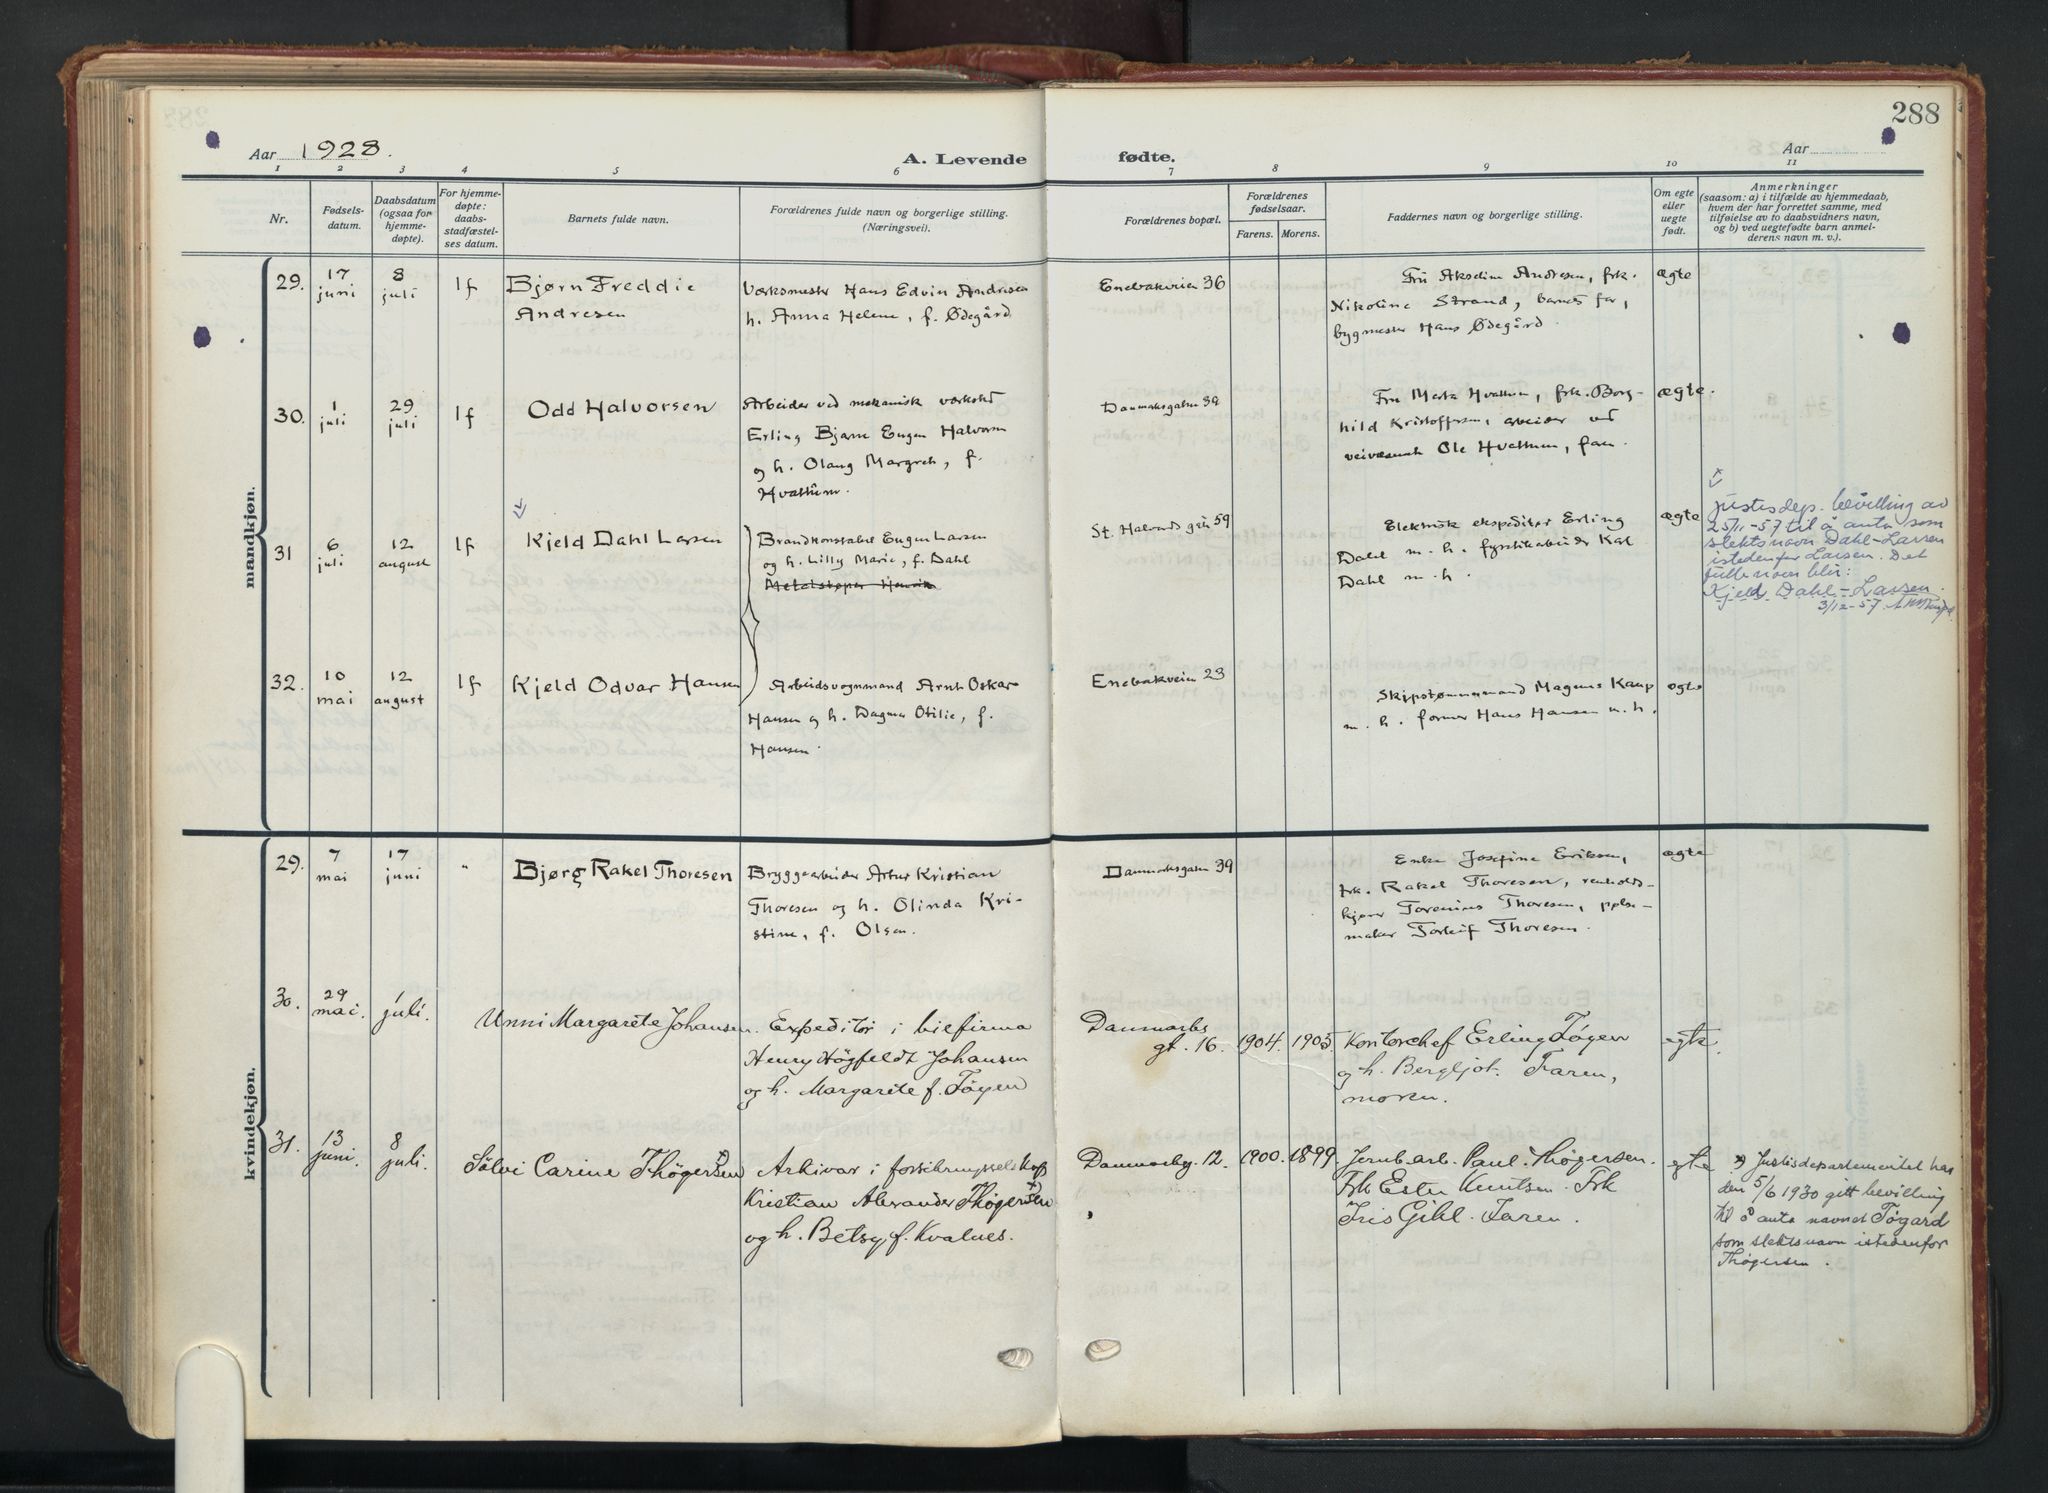 288
Aar 1928.
A. Levende fødte.
Aar
1 2 3 4 5 6 7 8 9 10 11
Nr.
Fødsels-
datum.
Daabsdatum
(ogsaa for
hjemme-
døpte).
For hjemme-
døpte:
daabs-
stadfæstel-
ses datum.
Barnets fulde navn.
Forældrenes fulde navn og borgerlige stilling.
(Næringsvei).
Forældrenes bopæl.
Forældrenes
fødselsaar.
Farens. Morens.
Faddernes navn og borgerlige stilling.
Om egte
eller
uegte
født.
Anmerkninger
(saasom: a) i tilfælde av hjemmedaab,
hvem der har forrettet samme, med
tilføielse av to daabsvidners navn,
og b) ved uegtefødte barn anmel-
derens navn m. v.).
mandkjøn.
29.
17
juni
8
juli
1f
Bjørn Freddie
Andresen
Værksmester Hans Edvin Andresen
h. Anna Helene, f. Ødegård
Enebakveien 36
Fru Akseline Andresen, frk.
Nikoline Strand, barnets far,
bygmester Hans Ødegård.
ægte
30.
1
juli
29
juli
1f
Odd Halvorsen
Arbeider ved mekanisk værksted
Erling Bjarne Eugen Halvorsen
og h. Olaug Margreth, f.
Hvattum.
Danmarksgaten 39
Fru Marta Hvattum, frk. Borg-
hild Kristoffersen, arbeider ved
veivæsenet Ole Hvattum, faren.
ægte.
31
6
juli
12
august
1f
Kjeld Dahl Larsen
Brandkonstabel Eugen Larsen
og h. Lilly Marie, f. Dahl
Metalstøper Henrik
St. Halvards gate 59
Elektrisk ekspeditør Erling
Dahl m. h. fyrstikarbeider Karl
Dahl m. h.
ægte
Justisdep. bevilling av
25/11-57 til å anta som
slektsnavn Dahl-Larsen
istedenfor Larsen. Det
fulle navn blir:
Kjeld Dahl-Larsen.
3/12-57
32.
10
mai
12
august
1f
Kjeld Odvar Hansen
Arbeidsvognmand Arnt Oskar
Hansen og h. Dagmar Otilie, f.
Hansen.
Enebakveien 23
Skipstømmermand Magnus Kaup
m. h. former Hans Hansen m. h.
egte
kvindekjøn.
29.
7
mai
17
juni
"
Bjørg Rakel Thoresen
Bryggearbeider Artur Kristian
Thoresen og h. Olinda Kri-
stine, f. Olsen.
Danmarksgaten 39
Enke Josefine Eriksen,
frk. Rakel Thoresen, renholds-
kjører Torenius Thoresen, pølse-
maker Torleif Thoresen.
ægte
30.
29
mai.
1
juli.
Unni Margarete Johansen.
Expeditør i biefirma
Henry Högfeldt Johansen
og h. Margarete f. Tøyen
Danmarks
gt. 16.
1904. 1905.
Kontorchef Erling Tøyen
og h. Bergljot. Faren,
moren.
egte.
31.
13
juni.
8
juli.
Sølvi Carine Thøgersen
Arkivar i forsikringsselskap
Kristian Alexander Thøgersen
og h. Betsy f. Kvalnes.
Danmarksg. 12.
1900. 1899
Jernb.arb. Paul Thøgersen.
Frk Ester Knutsen. Frk
Iris Gihl. Faren.
egte
x) Justisdepartementet har
den 5/6 1930 gitt bevilling
til å anta navnet Tøgard
som slektsnavn istedenfor
Thøgersen.